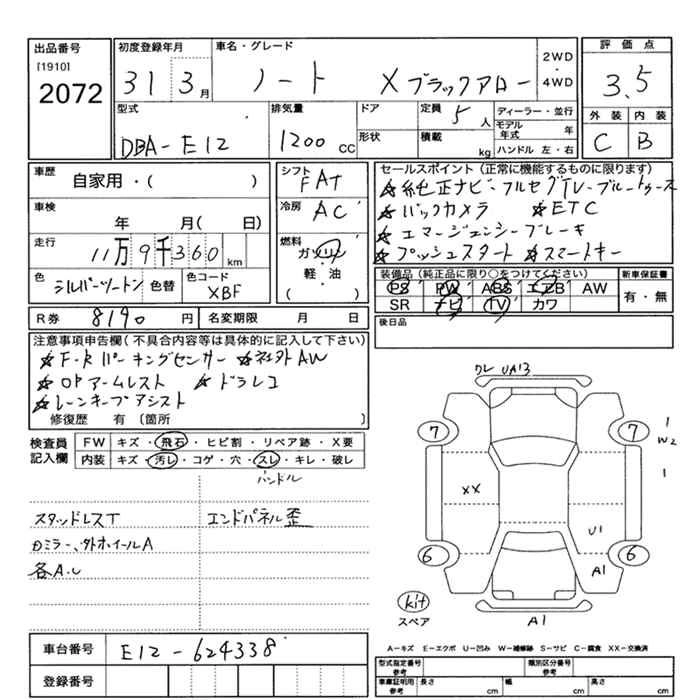 出品番号
[1910]
2072
初度登録年月
31 3月
車名・グレード
ノート X ブラックアロー
2WD
・
4WD
評価点
3.5
外装 内装
C B
型式
DBA-E12
排気量
1200 cc
ドア
形状
定員 5人
積載 kg
ディーラー・並行
モデル年式 年
ハンドル 左・右
車歴
自家用・( )
車検
年 月( 日)
走行
11万9千360 km
色
シルバーツートン
色替
色コード
XBF
シフト
FAT
冷房
AC
燃料
ガソリン
軽・油
( )
セールスポイント(正常に機能するものに限ります)
☆純正ナビ・フルセグTV・ブルートゥース
☆バックカメラ ☆ETC
☆エマージェンシーブレーキ
☆プッシュスタート ☆スマートキー
装備品(純正品に限り○をつけてください)
PS PW ABS エアB AW
SR ナビ TV カワ
新車保証書
有・無
R券 8190 円
名変期限 月 日
後日品
注意事項申告欄(不具合内容等は具体的に記入して下さい)
☆F・Rパーキングセンサー ☆社外AW
☆OPアームレスト ☆ドラレコ
☆レーンキープアシスト
修復歴 有(箇所 )
検査員
記入欄
FW キズ・飛石・ヒビ割・リペア跡・X要
内装 キズ・汚レ・コゲ・穴・スレ・キレ・破レ
ハンドル
スタッドレスT
エンドパネル歪
Dミラー、外ホイールA
各A.U
ワレ UA13
7
7
1
W2
1
XX
U1
6
6
A1
kit
スペア
A1
車台番号
E12-624338
登録番号
A-キズ E-エクボ U-凹み W-補修跡 S-サビ C-腐食 XX-交換済
型式指定番号
参考
類別区分番号
参考
車庫証明用
参考
長さ cm
幅 cm
高さ cm